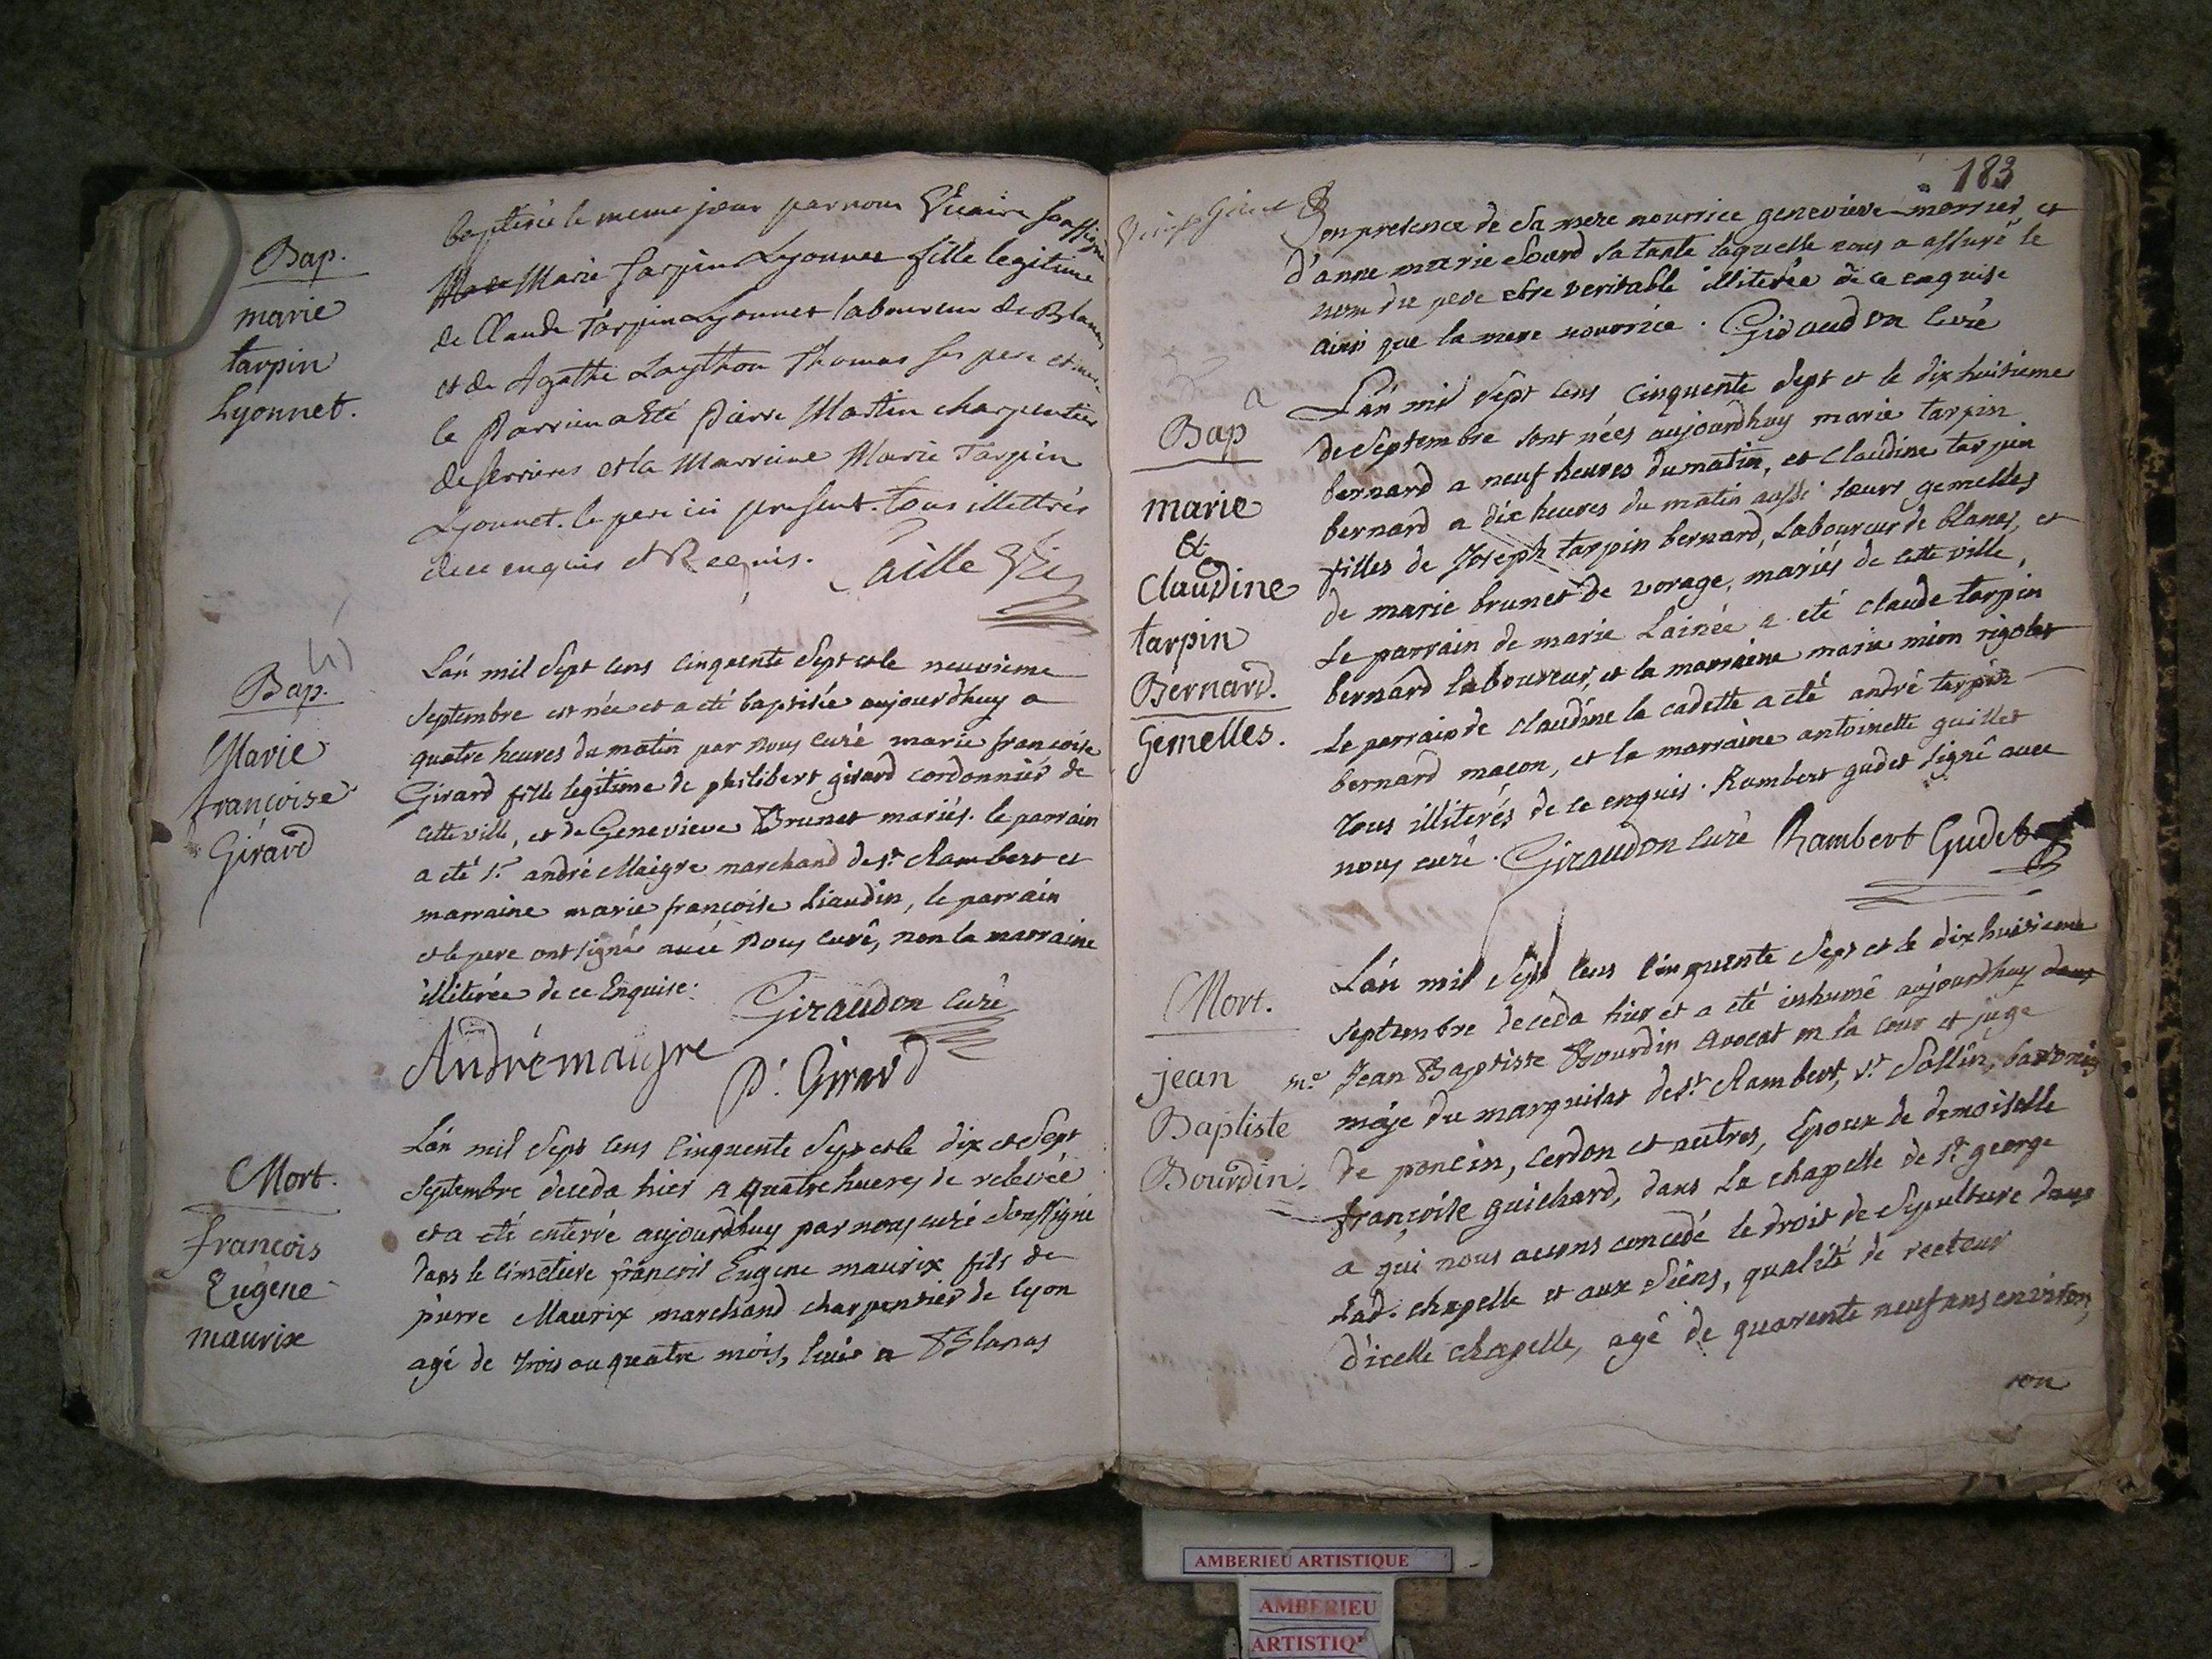 Bap.
marie
tarpin
Lyonnet.
baptisée le meme jour par nous Vicaire soussigné
Marie Tarpin Lyonnet fille legitime
de Claude Tarpin Lyonnet laboureur de Blanas
et de Agathe Laython Thomas ses pere et mere
le Parrien a Eté Pierre Martin charpentier
de serrieres et la Marreine Marie Tarpin
Lyonnet. le pere ici present. tous illettrés
de ce enquis et Requis. Caille Vic
Bap.
Marie
françoise
Girard
L'an mil sept cens cinquente sept et le neuvieme
septembre est née et a eté baptisée aujourdhuy a
quatre heures du matin par nous curé marie françoise
Girard fille legitime de philibert girard cordonnier de
cette ville, et de Genevieve Brunet mariés. le parrain
a eté sr. andré Maigre marchand de st Rambert et
marraine marie françoise Liaudin, le parrain
et le pere ont signé avec nous curé, non la marraine
illiterée de ce Enquise.
Giraudon curé
André maigre
P. Girard
Mort.
françois
Eugene
maurix
L'an mil sept cens cinquente sept et le dix et sept
septembre deceda hier a quatre heures de relevée
et a eté enterré aujourdhuy par nous curé soussigné
dans le cimetiere françois Eugene maurix fils de
pierre Maurix marchand charpentier de lyon
agé de trois ou quatre mois, a Blanas
183
en presence de sa mere nourrice genevieve et
d'anne marie sa tante laquelle nous a assuré le
nom du pere etre veritable illiterée de ce enquise
ainsi que la mere nourrice. Giraudon curé
Bap
marie
et
Claudine
tarpin
Bernard.
Gemelles.
L'an mil sept cens cinquente sept et le dix huitieme
de septembre sont nées aujourdhuy marie tarpin
bernard a neuf heures du matin, et claudine tarpin
bernard a dix heures du matin aussi sœurs gemelles
filles de Joseph tarpin bernard, Laboureur de blanas, et
de marie brunet de vorage, mariés de cette ville,
Le parrain de marie Lainée a eté claude tarpin
bernard laboureur, et la marraine marie mion rigolet
Le parrain de claudine la cadette a eté andré tarpin
bernard maçon, et la marraine antoinette guillet
tous illiterés de ce enquis. Rambert gudet signé avec
nous curé. Giraudon curé Rambert Gudet
Mort.
jean
Baptiste
Bourdin.
L'an mil sept cens cinquente sept et le dix huitieme
septembre deceda hier et a eté inhumé aujourdhuy dans
me Jean Baptiste Bourdin Avocat en la cour et juge
maje du marquisat de st. Rambert, st. Sorlin, baronnies
de poncin, cerdon et autres, Epoux de demoiselle
françoise guichard, dans la chapelle de st. george
a qui nous avons concedé le droit de sepulture dans
lad. chapelle et aux siens, qualité de recteur
d'icelle chapelle, agé de quarente neuf ans environ,
AMBERIEU ARTISTIQUE
AMBERIEU
ARTISTIQ